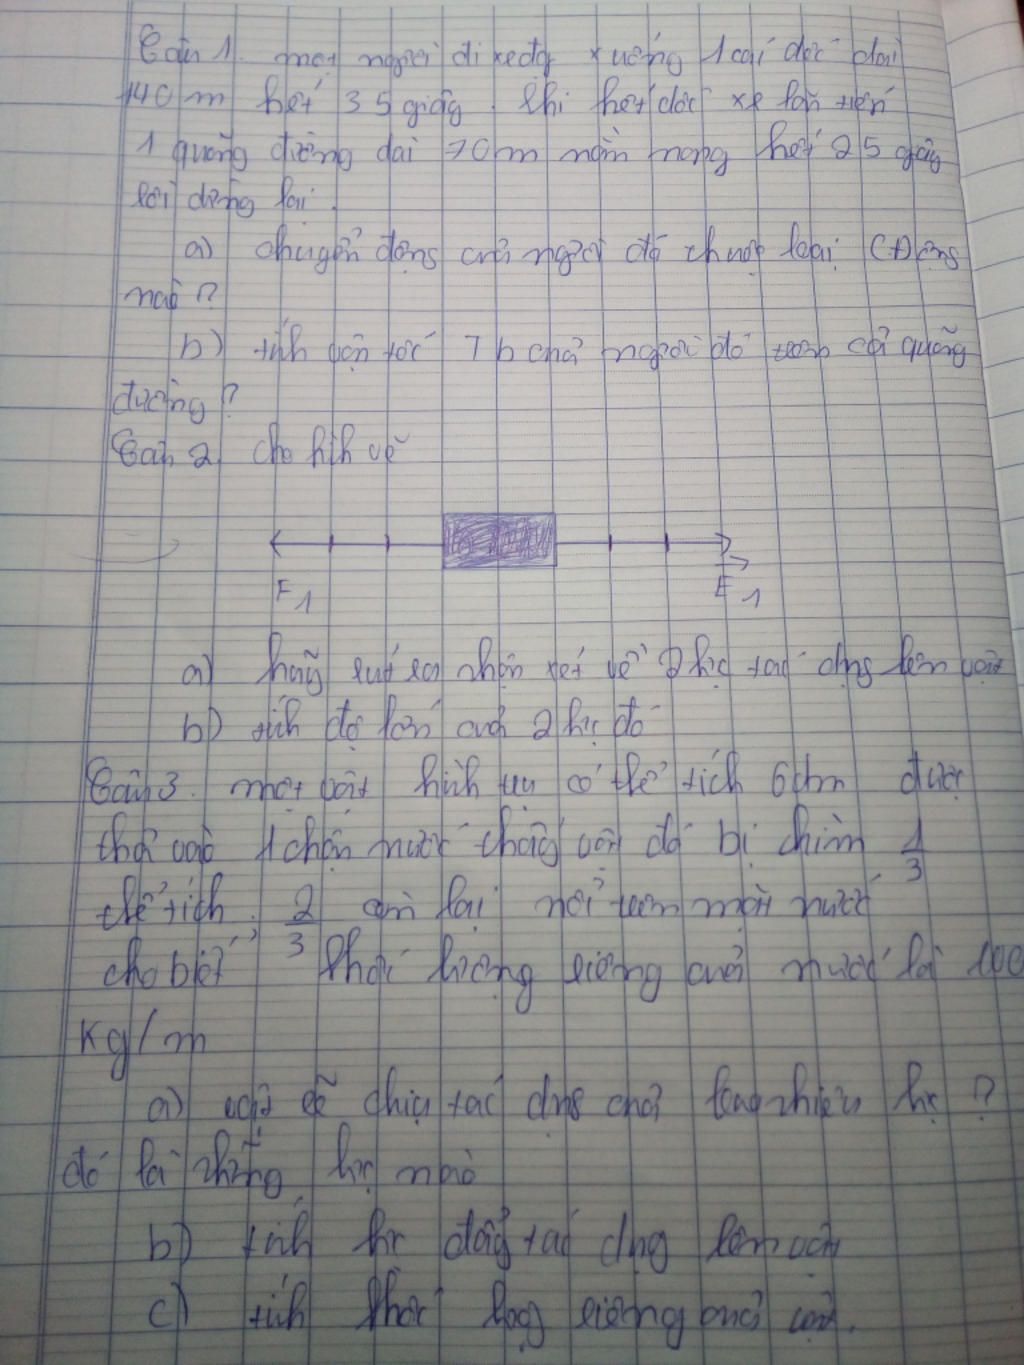 Câu 1. một người đi xe đạp xuống 1 cái dốc dài
140 m hết 35 giây. khi hết dốc xe lăn tiến
1 quãng đường dài 70m nằm ngang hết 25 giây
rồi dừng lại.
a) chuyển động của người đó thuộc loại CĐộng
nào?
b) tính vận tốc Tb của người đó trên cả quãng
đường?
Câu 2 cho hih vẽ
F1 F1
a) hãy rút ra nhận xét về 2 lực tác dụng lên vật
b) tính độ lớn của 2 lực đó
Câu 3. một vật hình trụ có thể tích được
thả vào 1 chậu nước thấy vật đó bị chìm 1/3
thể tích, 2/3 còn lại nổi trên mặt nước
cho biết khối lượng riêng của nước là
kg/m
a) vật sẽ chịu tác dụng của bao nhiêu lực?
đó là những lực nào
b) tính lực đẩy tác dụng lên vật
c) tính khối lượng riêng của vật.